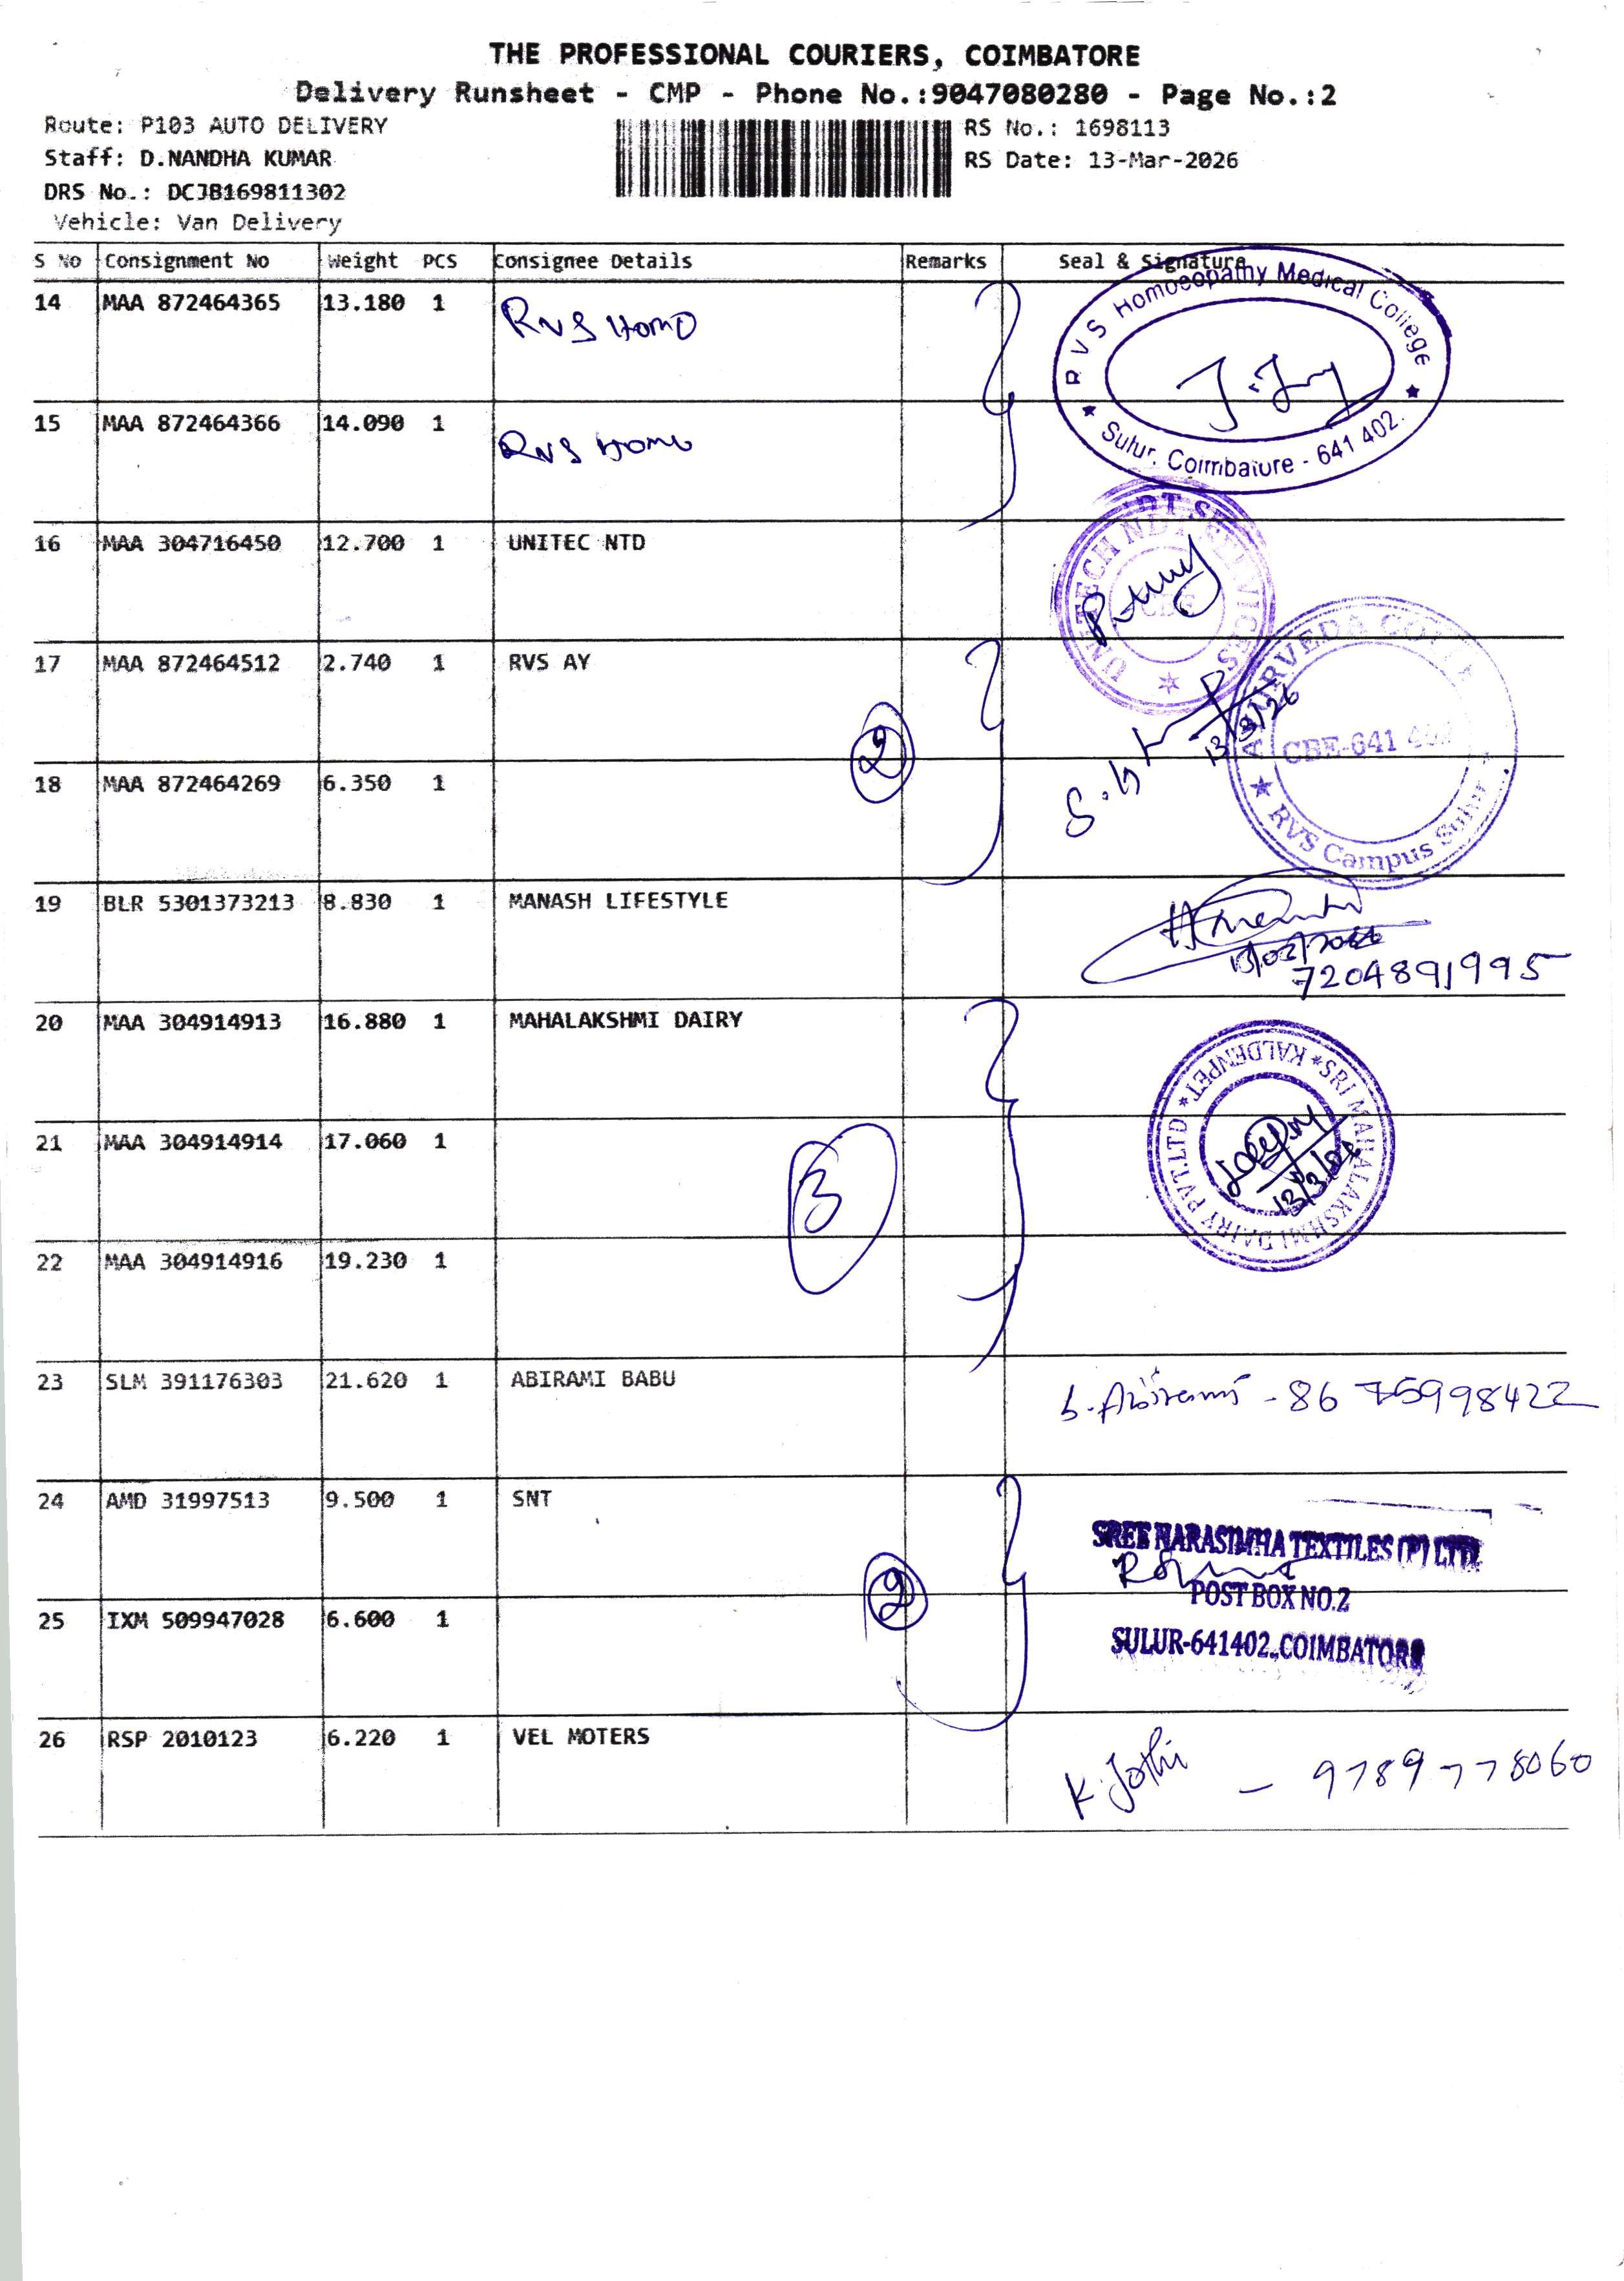 THE PROFESSIONAL COURIERS, COIMBATORE
Delivery Runsheet - CMP - Phone No.:9047080280 - Page No.:2
Route: P103 AUTO DELIVERY
Staff: D.NANDHA KUMAR
DRS No.: DCJB169811302
Vehicle: Van Delivery
RS No.: 1698113
RS Date: 13-Mar-2026
S No Consignment No Weight PCS Consignee Details Remarks Seal & Signature
14 MAA 872464365 13.180 1 RVS Homo
R V S Homoeopathy Medical College
Sulur, Coimbatore - 641 402.
15 MAA 872464366 14.090 1 RVS Homo
16 MAA 304716450 12.700 1 UNITEC NTD
17 MAA 872464512 2.740 1 RVS AY
13/3/26
2
CBE-641 402
RVS Campus Sulur
18 MAA 872464269 6.350 1
19 BLR 5301373213 8.830 1 MANASH LIFESTYLE
7204891995
20 MAA 304914913 16.880 1 MAHALAKSHMI DAIRY
SRI MAHALAKSHMI DAIRY PVT.LTD * KALDENPET *
21 MAA 304914914 17.060 1
3
22 MAA 304914916 19.230 1
23 SLM 391176303 21.620 1 ABIRAMI BABU
- 8675998422
24 AMD 31997513 9.500 1 SNT
SREE NARASIMHA TEXTILES (P) LTD
2
POST BOX NO.2
25 IXM 509947028 6.600 1
SULUR-641402.,COIMBATORE
26 RSP 2010123 6.220 1 VEL MOTERS
K. Jothi - 9789778060